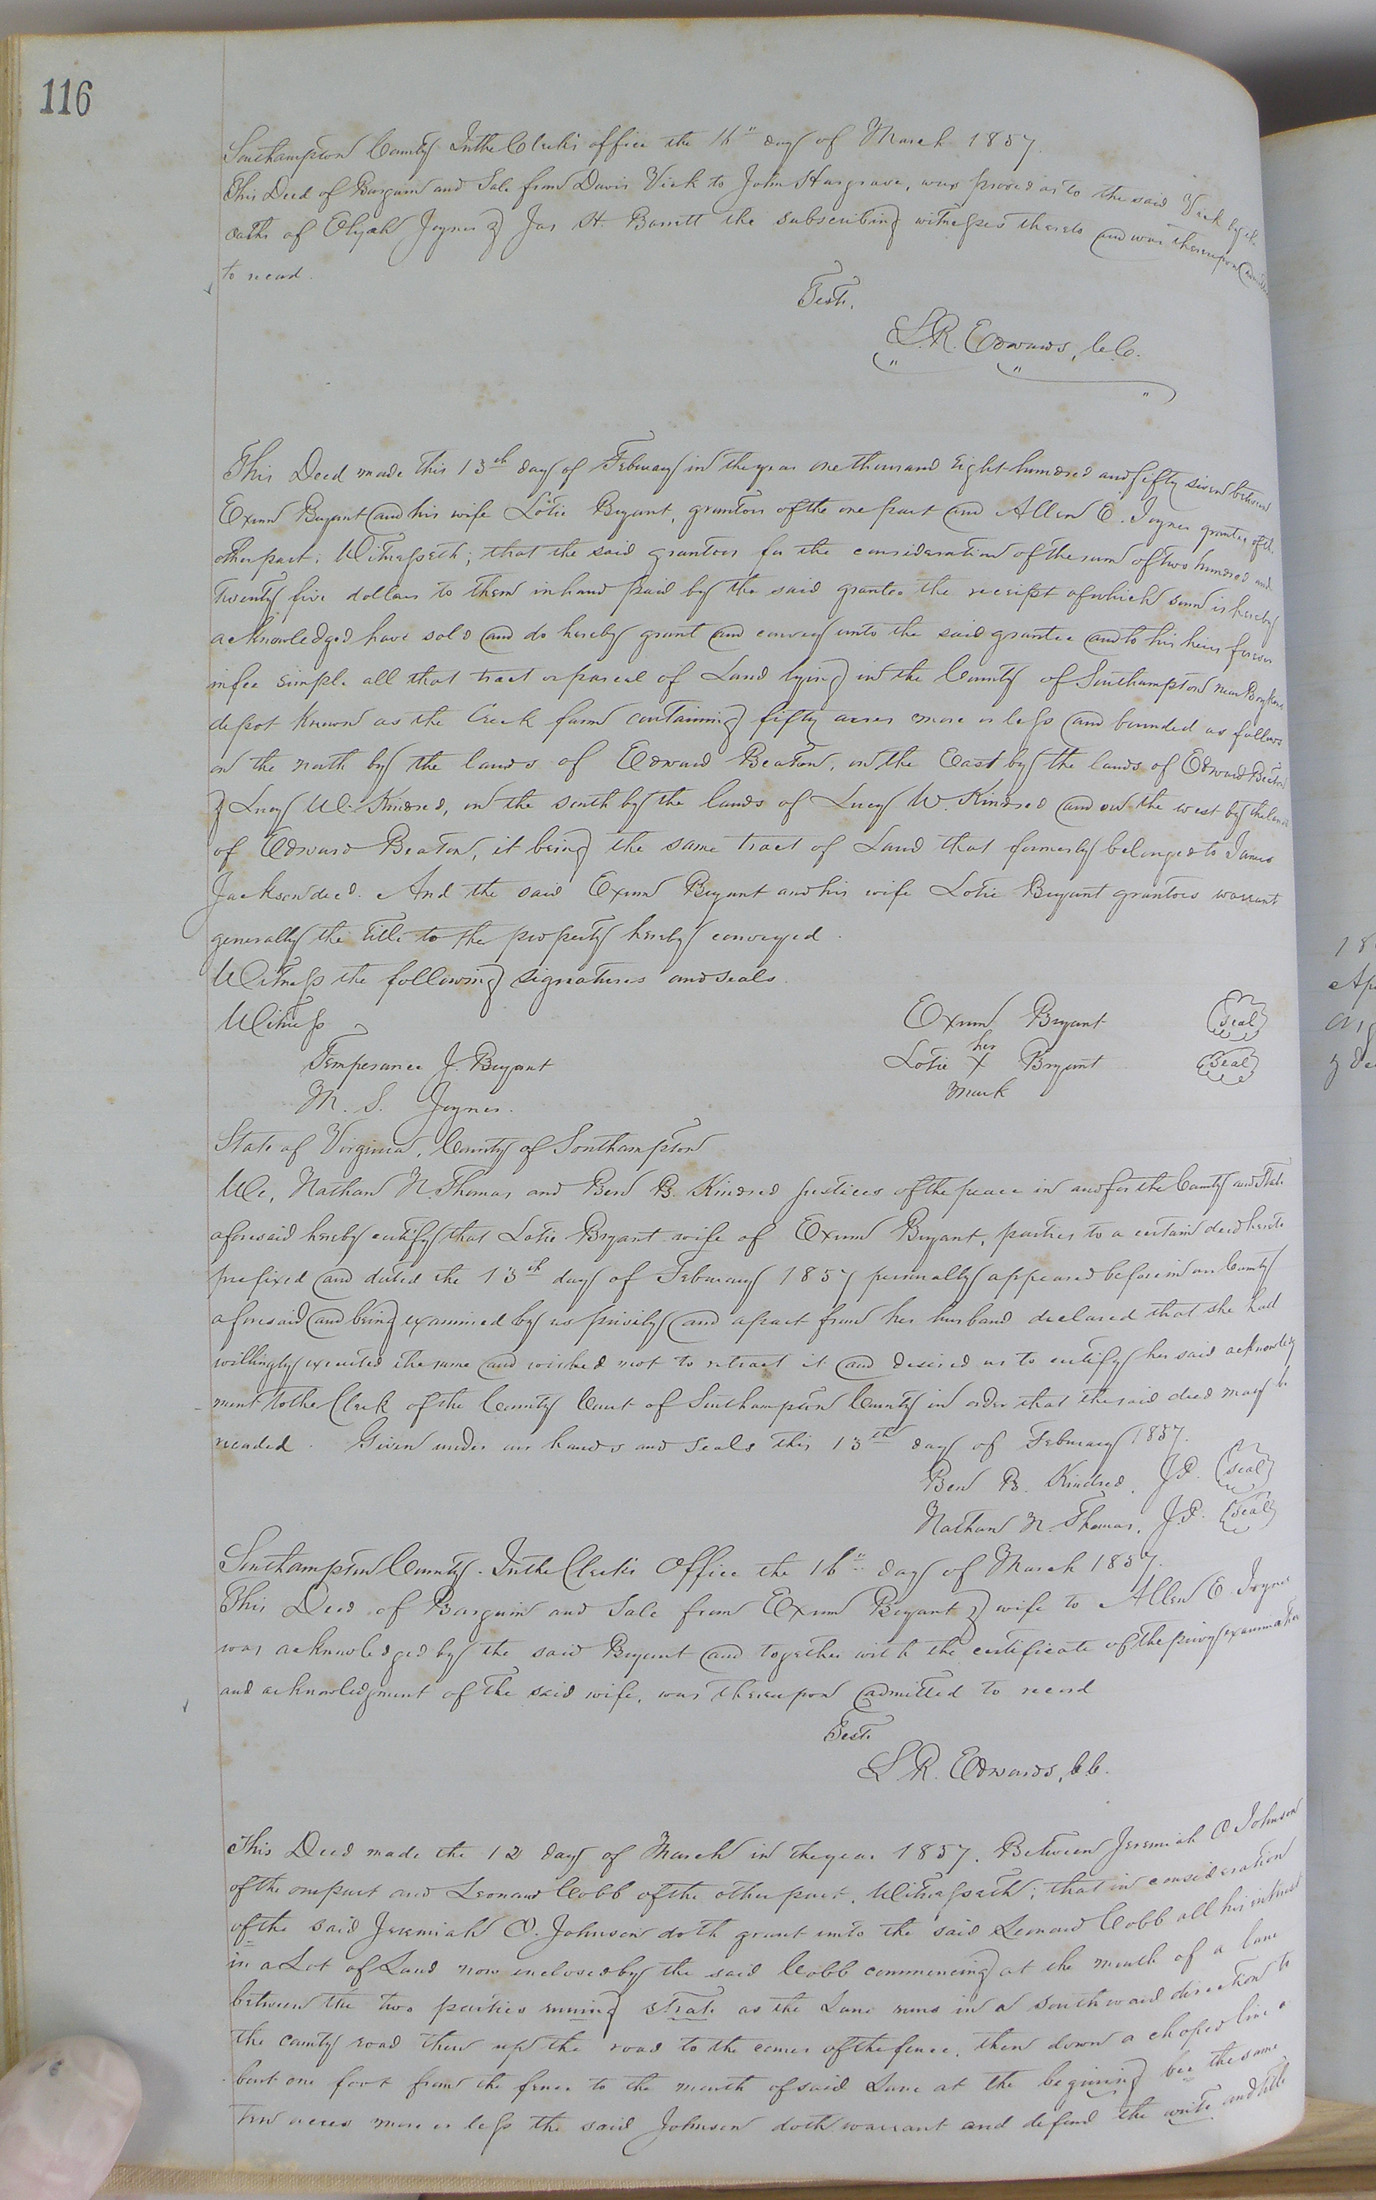 116
Southampton County In the Clerk's office the 16" day of March 1857.
This Deed of Bargain and Sale from Davis Vick to John Hargrave, was proved as to the said Vick by the
oaths of Elijah Joyner & Jas H. Barrett the subscribing witnesses thereto and was thereupon admitted
to record.
Teste.
L. R. Edwards, C.C.
This Deed made this 13th day of February in the year one thousand eight hundred and fifty seven between
Exum Bryant and his wife Lotie Bryant, grantors of the one part and Allen E. Joyner grantee of the
other part. Witnesseth; that the said grantors for the consideration of the sum of two hundred and
twenty five dollars to them in hand paid by the said grantee the receipt of which sum is hereby
acknowledged have sold and do hereby grant and convey unto the said grantee and to his heirs forever
in fee simple all that tract or parcel of Land lying in the County of Southampton near Boykins
depot known as the Creek farm containing fifty acres more or less and bounded as follows
on the north by the lands of Edward Beaton, on the East by the lands of Edward Beaton
& Lucy W. Kindred, on the south by the lands of Lucy W. Kindred and on the west by the lands
of Edward Beaton, it being the same tract of Land that formerly belonged to James
Jackson decd. And the said Exum Bryant and his wife Lotie Bryant grantors warrant
generally the title to the property hereby conveyed.
Witness the following signatures and seals.
Witness Exum Bryant (Seal)
Temperance J. Bryant Lotie her X mark Bryant (Seal)
M. S. Joyner.
State of Virginia, County of Southampton
We, Nathan N. Thomas and Ben B. Kindred justices of the peace in and for the County and State
aforesaid hereby certify that Lotie Bryant wife of Exum Bryant, parties to a certain deed hereto
prefixed and dated the 13th day of February 1857 personally appeared before in our County
aforesaid and being examined by us privily and apart from her husband declared that she had
willingly executed the same and wished not to retract it and desired us to certify her said acknowledg
ment to the Clerk of the County Court of Southampton County in order that the said deed may be
recorded. Given under our hands and seals this 13th day of February 1857.
Ben B. Kindred, J.P. (seal)
Nathan N. Thomas, J.P. (seal)
Southampton County. In the Clerk's Office the 16" day of March 1857.
This Deed of Bargain and Sale from Exum Bryant & wife to Allen E. Joyner
was acknowledged by the said Bryant and together with the certificate of the privy examination
and acknowledgment of the said wife, was thereupon admitted to record
Teste
L R. Edwards, C.C.
This Deed made the 12 day of March in the year 1857. Between Jeremiah O Johnson
of the one part and Leonard Cobb of the other part. Witnesseth; that in consideration
of the said Jeremiah O. Johnson doth grant unto the said Leonard Cobb all his interest
in a Lot of Land now inclosed by the said Cobb commencing at the mouth of a lane
between the two parties runing strate as the Lane runs in a southward direction to
the county road then up the road to the corner of the fence, then down a choped line a
bout one foot from the fence to the mouth of said Lane at the begining bee the same
two acres more or less the said Johnson doth warrant and defend the write and title